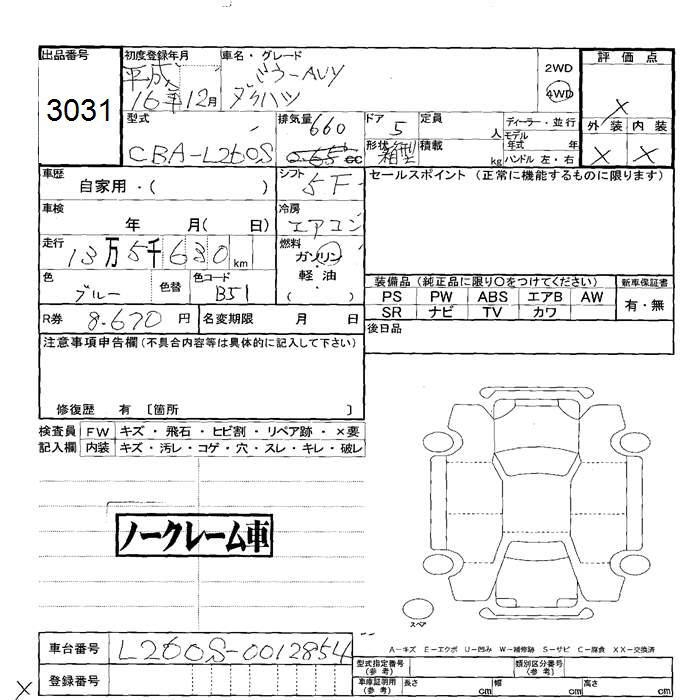 出品番号 初度登録年月 車名・グレード 評価点
3031 平成 16年12月 ミラーAVY ダイハツ 2WD 4WD ×
外装 内装
× ×
型式 排気量 ドア 定員 ディーラー・並行
CBA-L260S 660 cc 5 人 モデル年式 年
形状 箱型 積載 kg ハンドル 左・右
車歴 シフト セールスポイント(正常に機能するものに限ります)
自家用・( ) 5F
車検 冷房
年 月( 日) エアコン
走行 燃料
13万5千630km ガソリン・
軽・油
( )
色 色替 色コード 装備品(純正品に限り○をつけてください) 新車保証書
ブルー B51 PS PW ABS エアB AW 有・無
SR ナビ TV カワ
R券 8.670円 名変期限 月 日 後日品
注意事項申告欄(不具合内容等は具体的に記入して下さい)
修復歴 有 [箇所 ]
検査員 FW キズ・飛石・ヒビ割・リペア跡・×要
記入欄 内装 キズ・汚レ・コゲ・穴・スレ・キレ・破レ
ノークレーム車
スペア
車台番号 L260S-0012854
A-キズ E-エクボ U-凹み W-補修跡 S-サビ C-腐食 XX-交換済
型式指定番号(参考) 類別区分番号(参考)
登録番号 車庫証明用(参考) 長さ cm 幅 cm 高さ cm
×